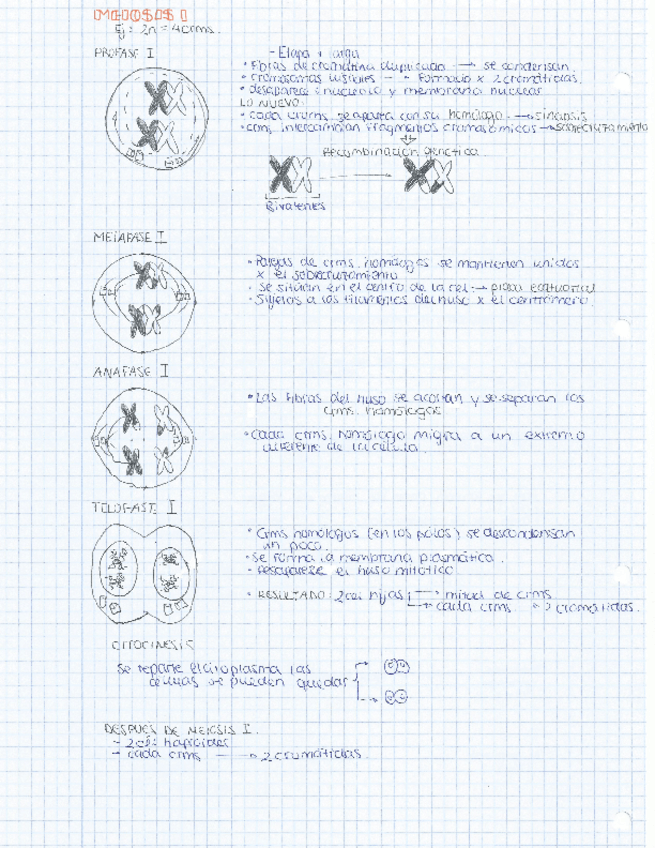 MEIOSIS I
Ej: 2n = 4 crms.
PROFASE I
- Etapa + larga
• Fibras de cromatina duplicada → se condensan
• cromosomas visibles → formado x 2 cromátidas.
• desaparece: nucleolo y membrana nuclear
LO NUEVO:
• cada crms. se aparea con su homólogo → sinapsis
• crms intercambian fragmentos cromosómicos → sobrecruzamiento
Recombinación genética
Bivalentes
METAFASE I
• Parejas de crms. homólogos se mantienen unidos
x el sobrecruzamiento
• Se sitúan en el centro de la cel. → placa ecuatorial
• Sujetos a los filamentos del huso x el centrómero.
ANAFASE I
• Las fibras del huso se acortan y se separan los
crms. homólogos
• Cada crms. homólogo migra a un extremo
diferente de la célula.
TELOFASE I
• Crms homólogos (en los polos) se descondensan
un poco.
• Se forma la membrana plasmática.
• Desaparece el huso mitótico
• RESULTADO: 2 cel hijas → mitad de crms
→ cada crms → 2 cromátidas.
CITOCINESIS
Se reparte el citoplasma las
células se pueden quedar
DESPUÉS DE MEIOSIS I.
- 2 cél haploides
- cada crms → 2 cromátidas.